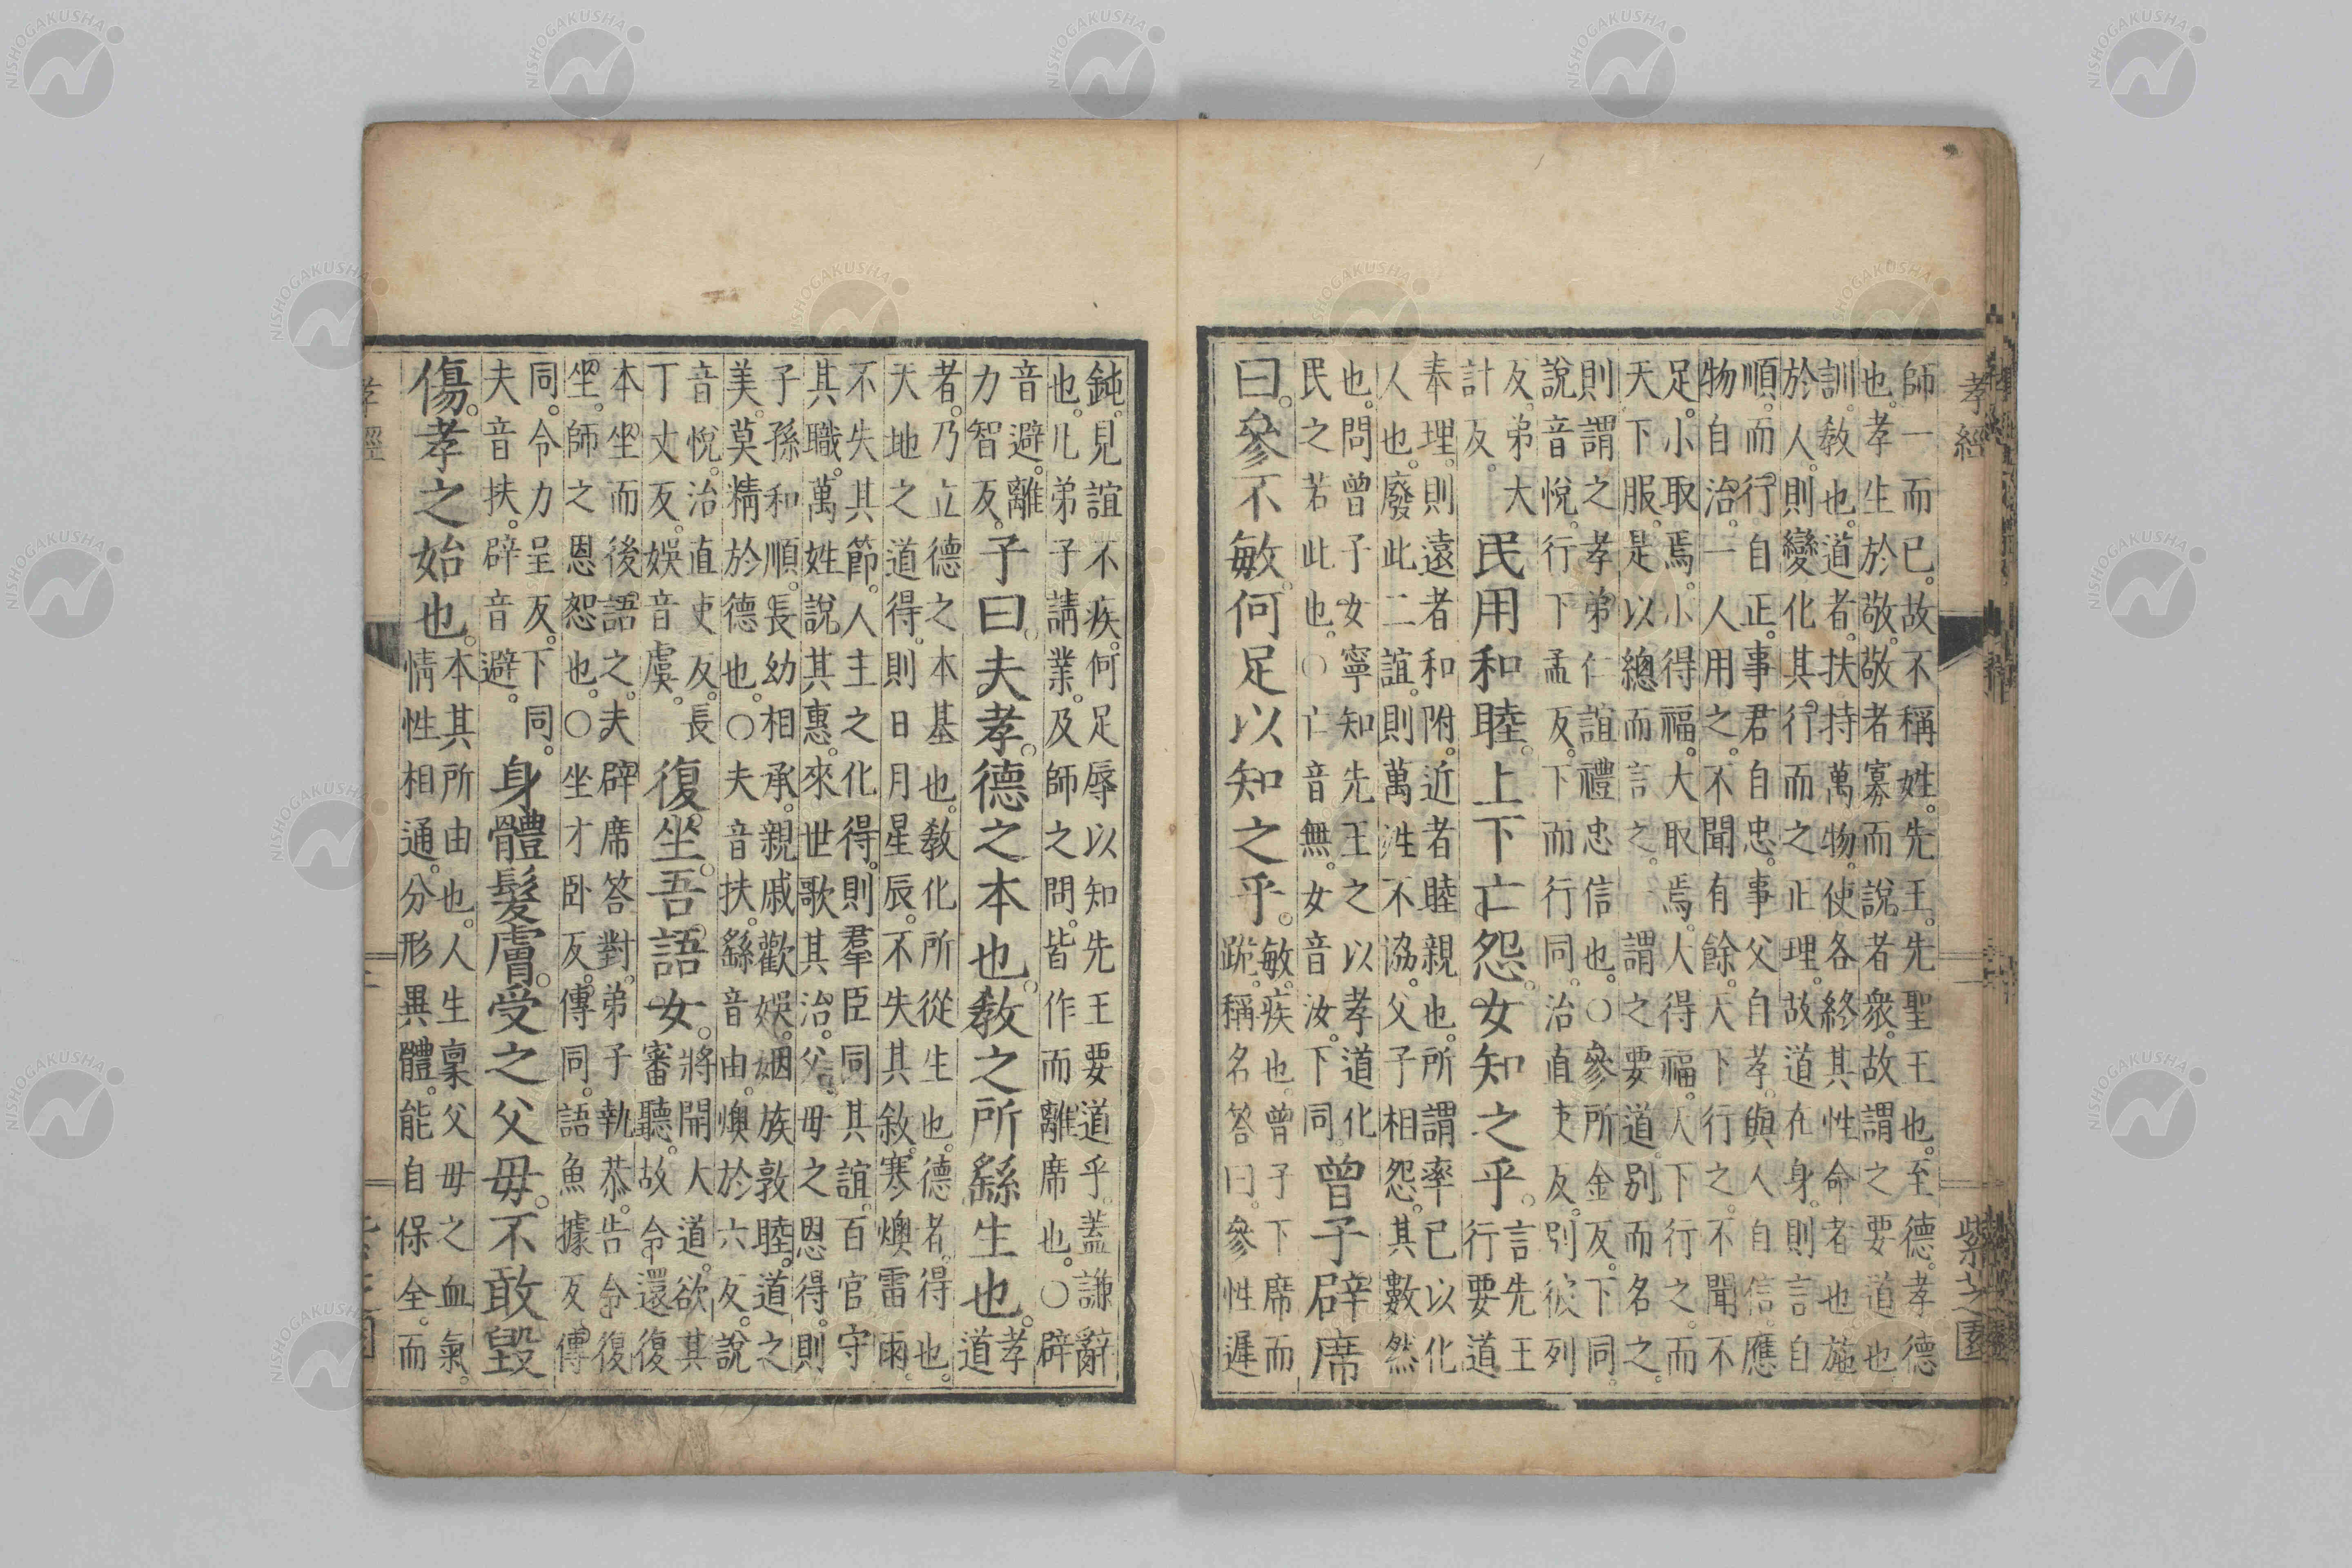 孝經
紫芝園
師一而已。故不稱姓。先王。先聖王也。至德。孝德
也。孝生於敬。敬者寡而說者衆。故謂之要道也
訓。教也。道者。扶持萬物。使各終其性命者也。施
於人。則變化其行而之正理。故道在身。則言自
順。而行自正。事君自忠。事父自孝。與人自信。應
物自治。一人用之。不聞有餘。天下行之。不聞不
足。小取焉。小得福。大取焉。大得福。天下行之。而
天下服。是以總而言之。謂之要道。別而名之。
則謂之孝弟仁誼禮忠信也。○參所金反。下同。
說音悅。行下孟反。下而行同。治直吏反。別彼列
反。弟大
計反。
民用和睦。上下亡怨。女知之乎。
言先王
行要道
奉理。則遠者和附。近者睦親也。所謂率已以化
人也。廢此二誼。則萬姓不協。父子相怨。其數然
也。問曾子女寧知先王之以孝道化
民之若此也。○亡音無。女音汝。下同。
曾子辟席
曰。參不敏。何足以知之乎。
敏。疾也。曾子下席而
跪。稱名答曰。參性遲
鈍。見誼不疾。何足辱以知先王要道乎。蓋謙辭
也。凡弟子請業。及師之問。皆作而離席也。○辟
音避。離
力智反。
子曰。夫孝。德之本也。教之所繇生也。
孝
道
者。乃立德之本基也。教化所從生也。德者。得也。
天地之道得。則日月星辰。不失其敘。寒燠雷雨。
不失其節。人主之化得。則羣臣同其誼。百官守
其職。萬姓說其惠。來世歌其治。父母之恩得。則
子孫和順。長幼相承。親戚歡娛。姻族敦睦。道之
美。莫精於德也。○夫音扶。繇音由。燠於六反。說
音悅。治直吏反。長
丁丈反。娛音虞。
復坐。吾語女。
將開大道。欲其
審聽。故令還復
本坐而後語之。夫辟席答對。弟子執恭。告令復
坐。師之恩恕也。○坐才臥反。傳同。語魚據反。傳
同。令力呈反。下同。
夫音扶。辟音避。
身體髮膚。受之父母。不敢毀
傷。孝之始也。
本其所由也。人生稟父母之血氣。
情性相通。分形異體。能自保全。而